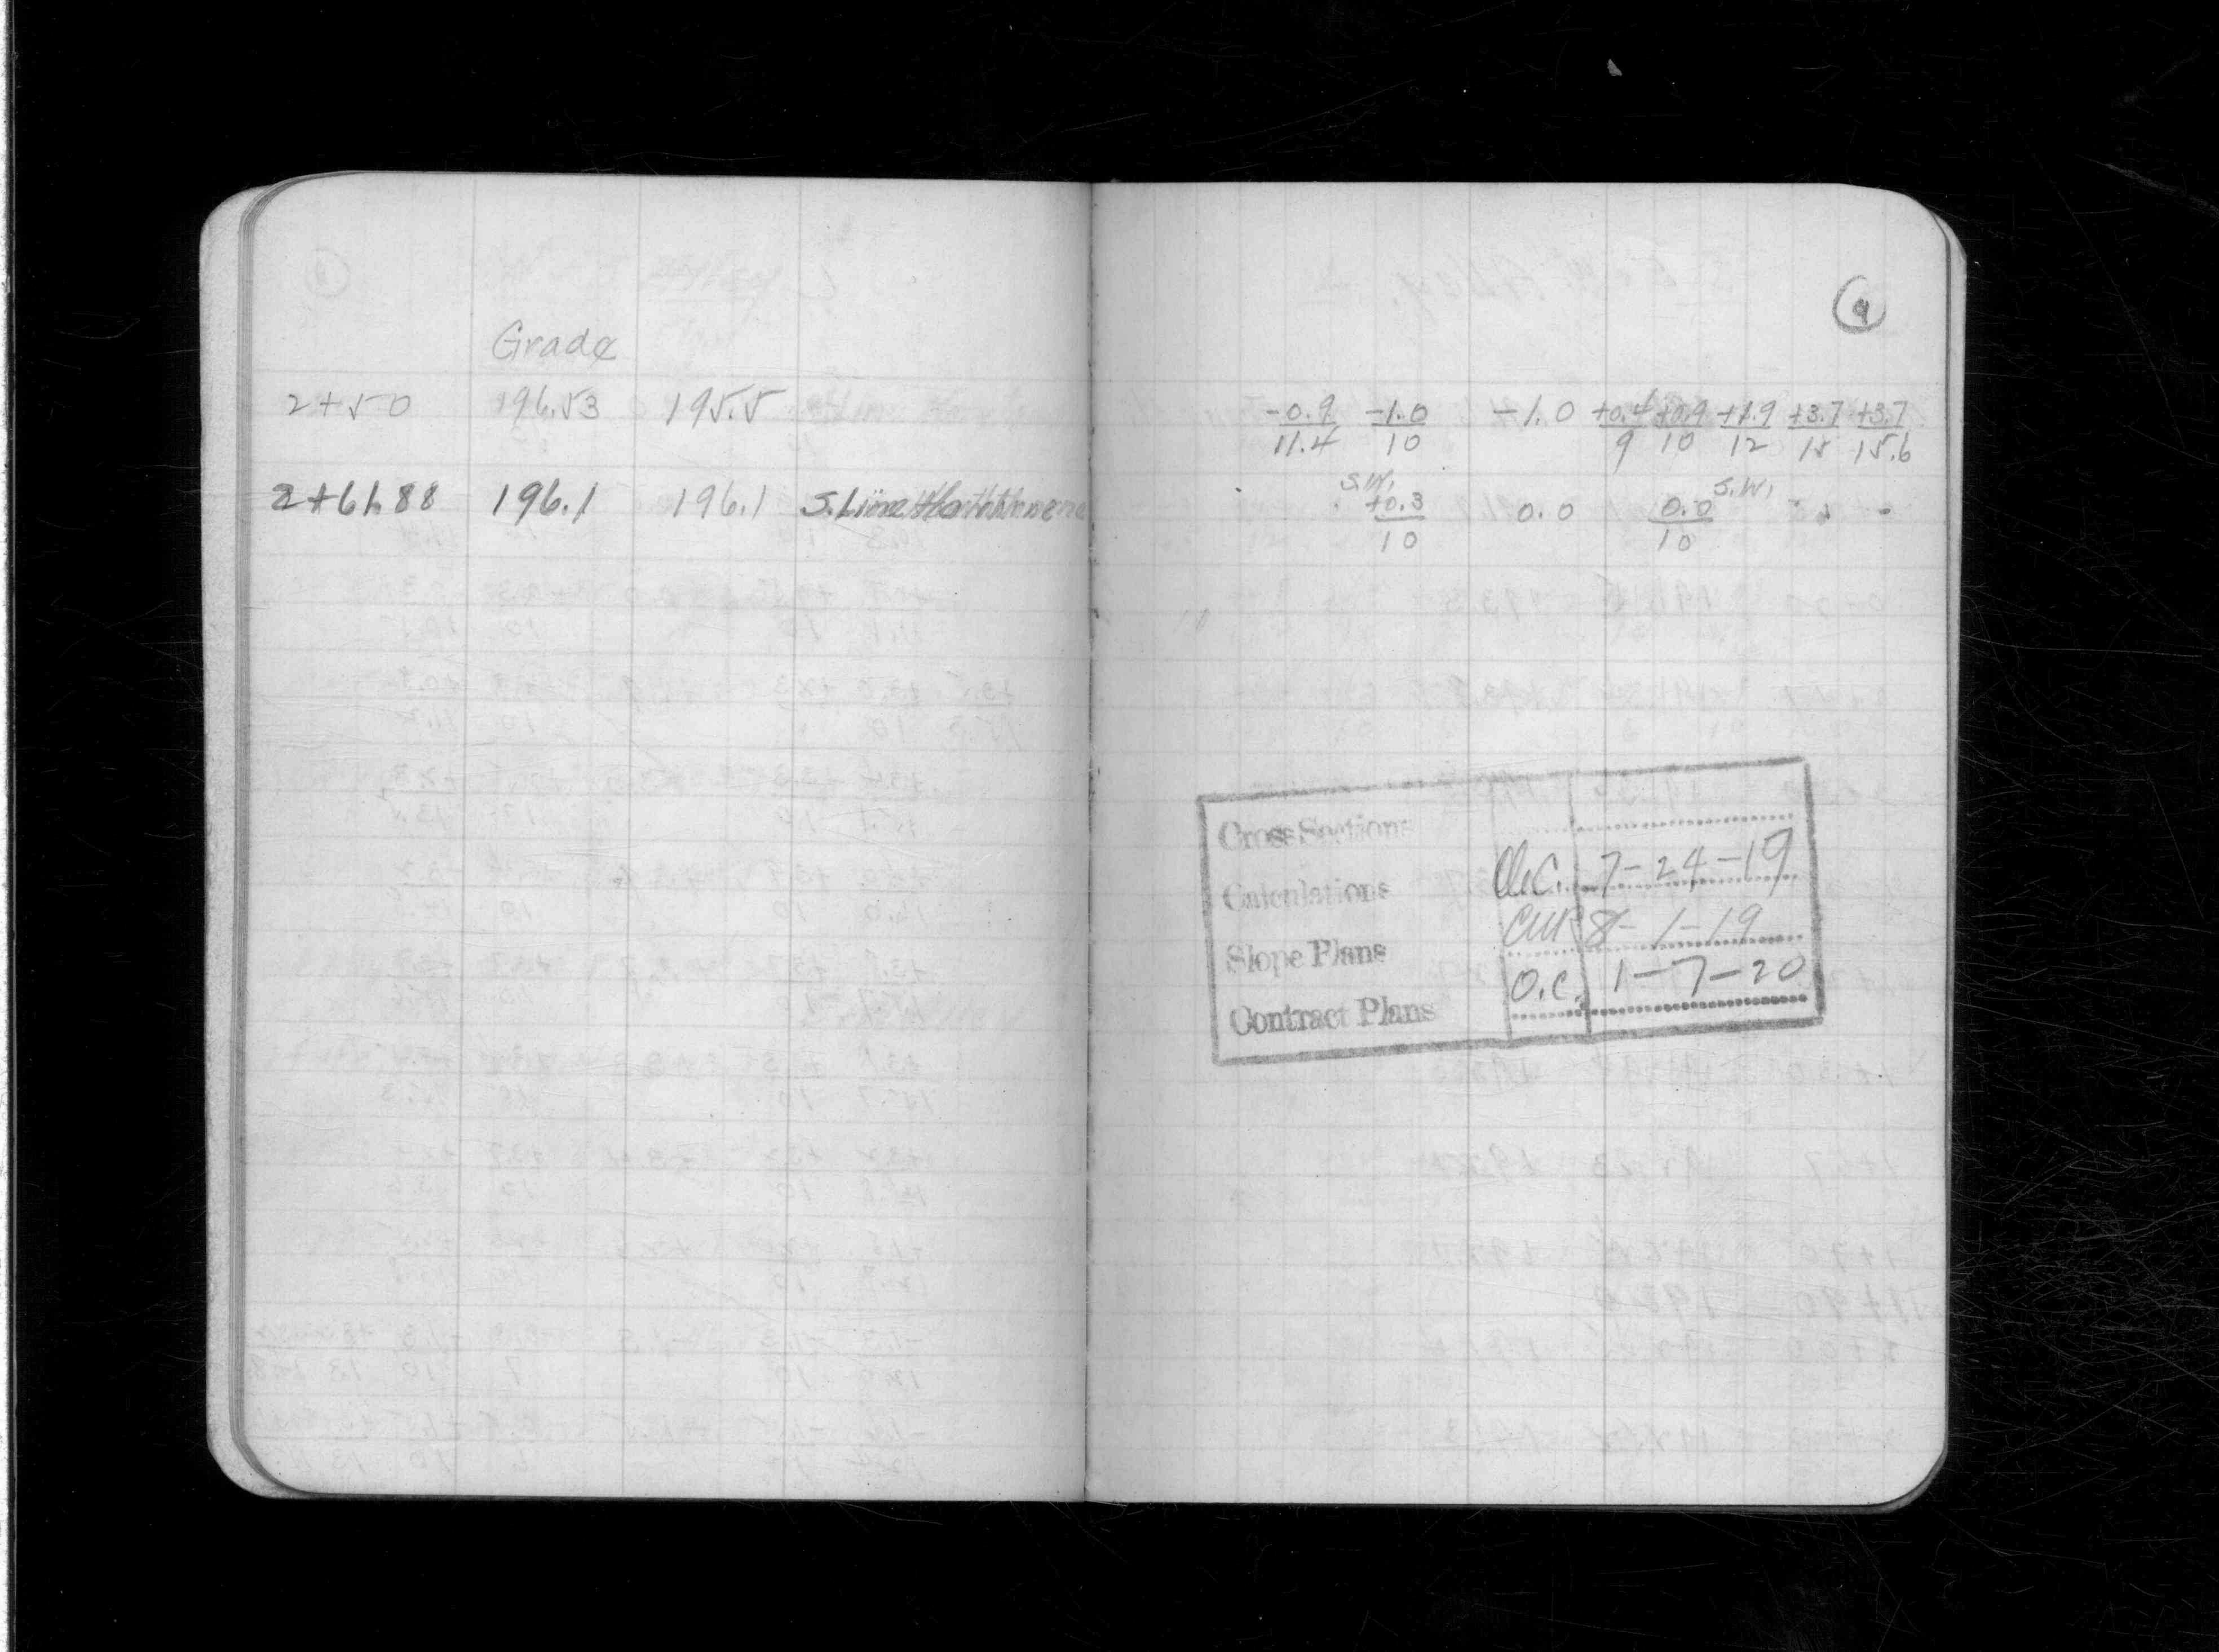 9
Grade
2+50 196.53 195.5 -0.9/11.4 -1.0/10 -1.0 +0.4/9 +0.9/10 +1.9/12 +3.7/15 +3.7/15.6
2+61.88 196.1 196.1 S. Line S.W. +0.3/10 0.0 0.0/10 S.W.
Cross Sections
Calculations O.C. 7-24-19
Slope Plans 8-1-19
Contract Plans O.C. 1-7-20